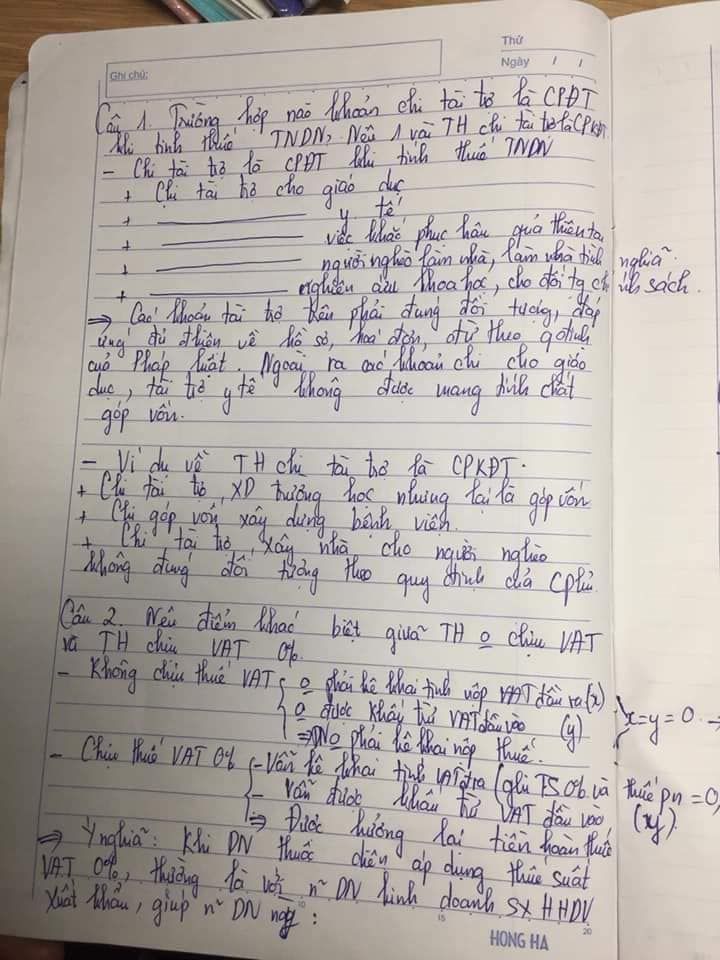 Thứ
Ngày / /
Ghi chú:
Câu 1. Trường hợp nào khoản chi tài trợ là CPĐT
khi tính thuế TNDN, Nêu 1 vài TH chi tài trợ là CPKĐT
- Chi tài trợ là CPĐT khi tính thuế TNDN
+ Chi tài trợ cho giáo dục
+ ——— y tế
+ ——— việc khắc phục hậu quả thiên tai
+ ——— người nghèo làm nhà, làm nhà tình nghĩa.
+ ——— nghiên cứu khoa học, cho đối tg chính sách.
=> Các khoản tài trợ trên phải đúng đối tượng, đáp
ứng đủ thiện về hồ sơ, hoá đơn, từ theo qđịnh
của Pháp luật. Ngoài ra các khoản chi cho giáo
dục, tài trợ y tế không được mang tính chất
góp vốn.
- Ví dụ về TH chi tài trợ là CPKĐT.
+ Chi tài trợ, XD trường học nhưng lại là góp vốn
+ Chi góp vốn xây dựng bệnh viện.
+ Chi tài trợ xây nhà cho người nghèo
không đúng đối tượng theo quy định của CPhủ.
Câu 2. Nêu điểm khác biệt giữa TH o chịu VAT
và TH chịu VAT 0%.
- Không chịu thuế VAT { o phải kê khai tính nộp VAT đầu ra (x)
o được khấu trừ VAT đầu vào (y) } x=y=0. →
=> DN o phải kê khai nộp thuế.
- Chịu thuế VAT 0% { - Vẫn kê khai tính VAT đra (ghi TS 0% và thuế pn = 0,
- Vẫn được khấu trừ VAT đầu vào (xy).
=> Được hưởng lại tiền hoàn thuế
=> Ý nghĩa: Khi DN thuộc diện áp dụng thuế suất
VAT 0%, thường là với n~ DN kinh doanh SX HHDV
xuất khẩu, giúp n~ DN này :
10
15
20
HONG HA